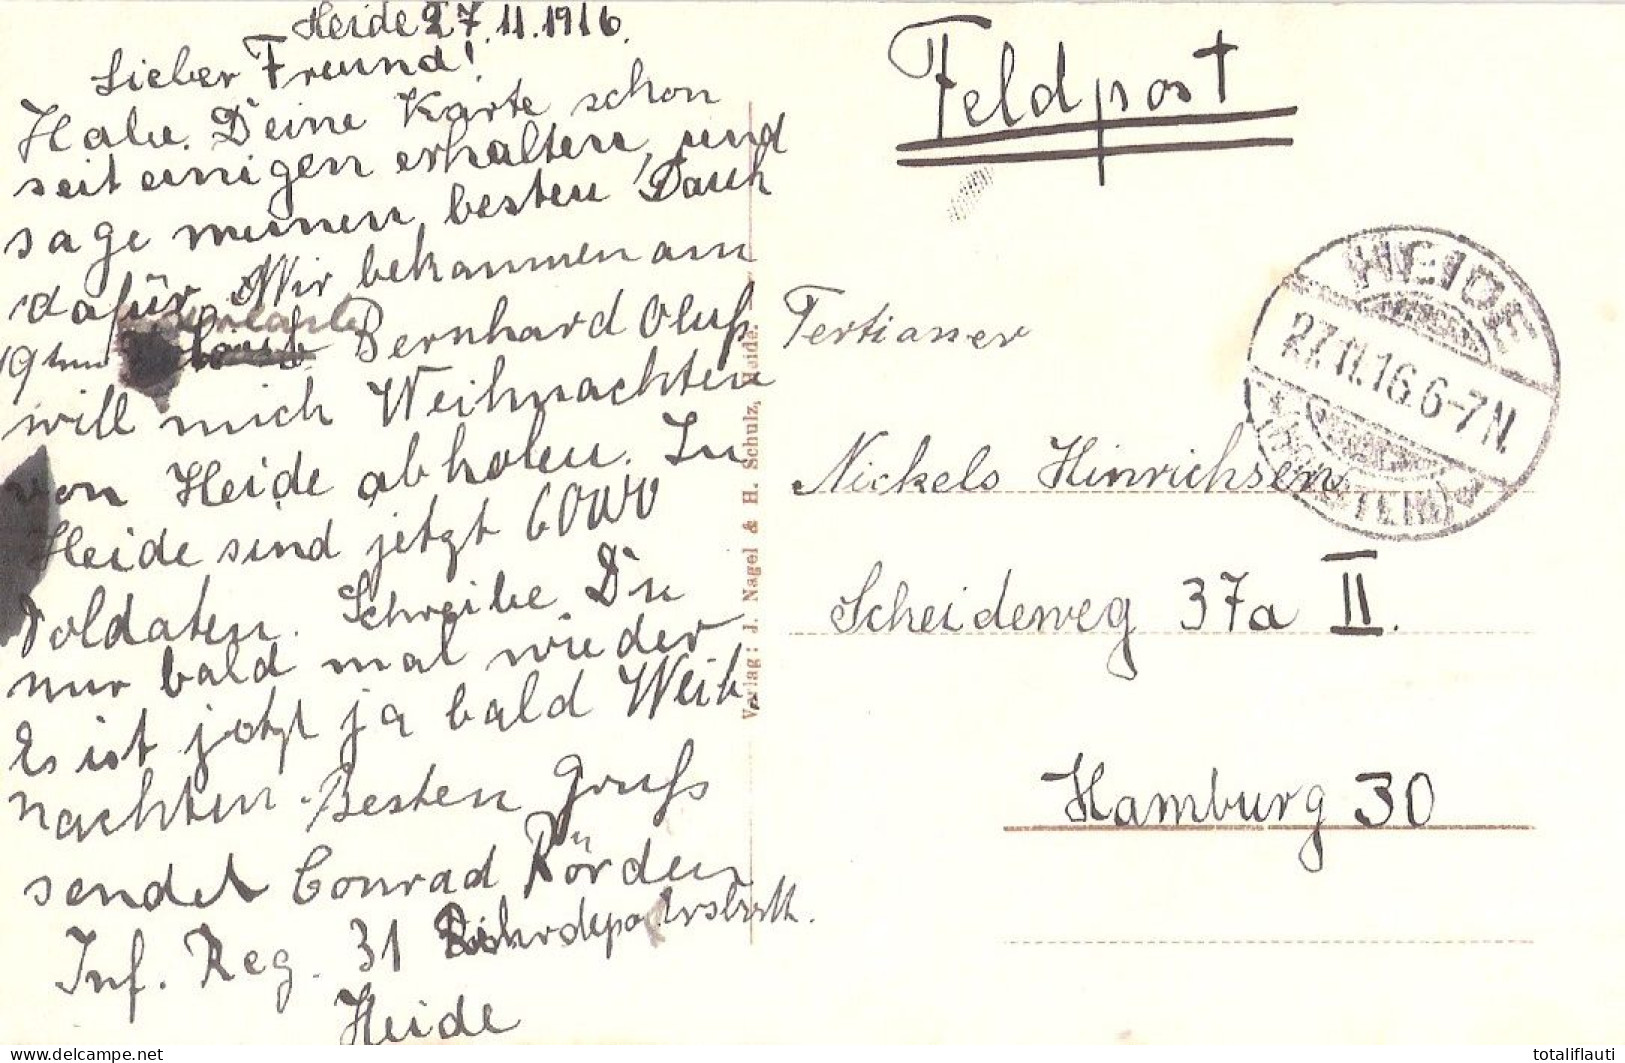 Heide 27.11.1916.
Lieber Freund!
Habe Deine Karte schon
seit einigen erhalten, und
sage meinen besten Dank
dafür. Wir bekommen am
19ten Bernhard Oluf
will mich Weihnachten
von Heide abholen. In
Heide sind jetzt 6000
Soldaten. Schreibe Du
nur bald mal wieder
Es ist jetzt ja bald Weih
nachten. Besten Gruß
sendet Conrad Rörden
Inf. Reg. 31
Heide
Verlag: J. Nagel & H. Schulz, Heide.
Feldpost
HEIDE
27.11.16.6-7N.
(HOLSTEIN)
Tertianer
Nickels Hinrichsen
Scheideweg 37a II.
Hamburg 30
www.delcampe.net
totaliflauti